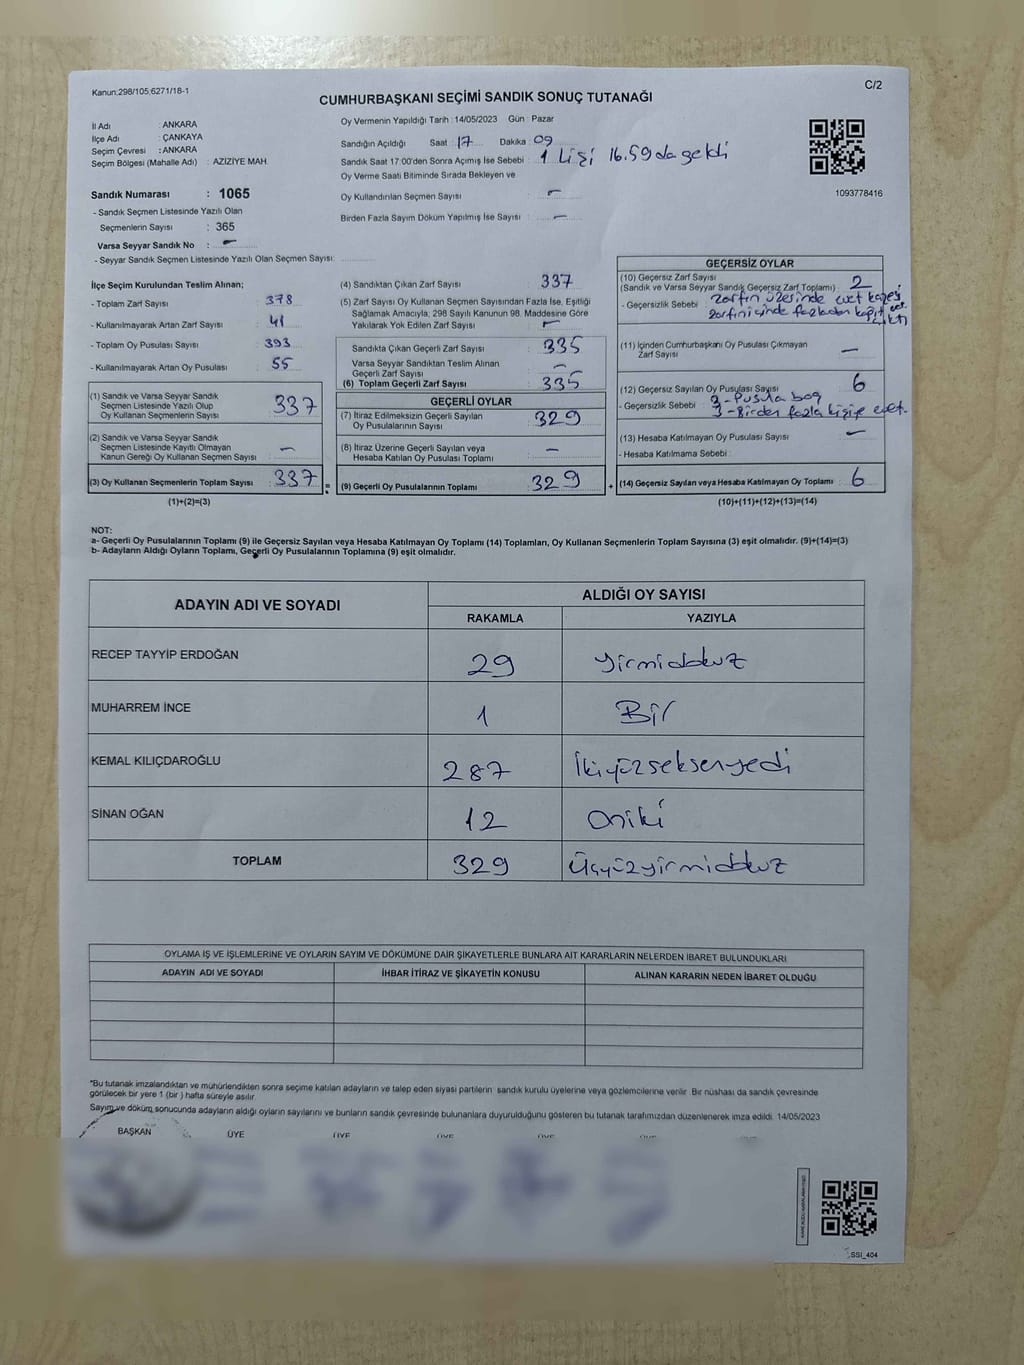 Kanun:298/105,6271/18-1
C/2
CUMHURBAŞKANI SEÇİMİ SANDIK SONUÇ TUTANAĞI
İl Adı : ANKARA
İlçe Adı : ÇANKAYA
Seçim Çevresi : ANKARA
Seçim Bölgesi (Mahalle Adı) : AZİZİYE MAH.
Sandık Numarası : 1065
- Sandık Seçmen Listesinde Yazılı Olan
Seçmenlerin Sayısı : 365
Varsa Seyyar Sandık No : –
- Seyyar Sandık Seçmen Listesinde Yazılı Olan Seçmen Sayısı:
Oy Vermenin Yapıldığı Tarih : 14/05/2023 Gün : Pazar
Sandığın Açıldığı Saat 17 Dakika 09
Sandık Saat 17:00'den Sonra Açımış İse Sebebi : 1 kişi 16.59 da geldi
Oy Verme Saati Bitiminde Sırada Bekleyen ve
Oy Kullandırılan Seçmen Sayısı –
Birden Fazla Sayım Döküm Yapılmış İse Sayısı : –
1093778416
İlçe Seçim Kurulundan Teslim Alınan;
- Toplam Zarf Sayısı : 378
- Kullanılmayarak Artan Zarf Sayısı : 41
- Toplam Oy Pusulası Sayısı : 393
- Kullanılmayarak Artan Oy Pusulası : 55
(1) Sandık ve Varsa Seyyar Sandık
Seçmen Listesinde Yazılı Olup
Oy Kullanan Seçmenlerin Sayısı : 337
(2) Sandık ve Varsa Seyyar Sandık
Seçmen Listesinde Kayıtlı Olmayan
Kanun Gereği Oy Kullanan Seçmen Sayısı : –
(3) Oy Kullanan Seçmenlerin Toplam Sayısı : 337
(1)+(2)=(3)
(4) Sandıktan Çıkan Zarf Sayısı : 337
(5) Zarf Sayısı Oy Kullanan Seçmen Sayısından Fazla İse, Eşitliği
Sağlamak Amacıyla, 298 Sayılı Kanunun 98. Maddesine Göre
Yakılarak Yok Edilen Zarf Sayısı : –
Sandıkta Çıkan Geçerli Zarf Sayısı : 335
Varsa Seyyar Sandıktan Teslim Alınan
Geçerli Zarf Sayısı : –
(6) Toplam Geçerli Zarf Sayısı : 335
GEÇERLİ OYLAR
(7) İtiraz Edilmeksizin Geçerli Sayılan
Oy Pusulalarının Sayısı : 329
(8) İtiraz Üzerine Geçerli Sayılan veya
Hesaba Katılan Oy Pusulası Toplamı : –
(9) Geçerli Oy Pusulalarının Toplamı : 329
GEÇERSİZ OYLAR
(10) Geçersiz Zarf Sayısı
(Sandık ve Varsa Seyyar Sandık Geçersiz Zarf Toplamı) : 2
- Geçersizlik Sebebi : zarfın üzerinde evet kaşesi
zarfın içinde fazladan kağıt vs.
çıktı
(11) İçinden Cumhurbaşkanı Oy Pusulası Çıkmayan
Zarf Sayısı : –
(12) Geçersiz Sayılan Oy Pusulası Sayısı : 6
- Geçersizlik Sebebi : 3- Pusula boş
3- Birden fazla kişiye evet.
(13) Hesaba Katılmayan Oy Pusulası Sayısı : –
- Hesaba Katılmama Sebebi :
(14) Geçersiz Sayılan veya Hesaba Katılmayan Oy Toplamı : 6
(10)+(11)+(12)+(13)=(14)
NOT:
a- Geçerli Oy Pusulalarının Toplamı (9) ile Geçersiz Sayılan veya Hesaba Katılmayan Oy Toplamı (14) Toplamları, Oy Kullanan Seçmenlerin Toplam Sayısına (3) eşit olmalıdır. (9)+(14)=(3)
b- Adayların Aldığı Oyların Toplamı, Geçerli Oy Pusulalarının Toplamına (9) eşit olmalıdır.
ADAYIN ADI VE SOYADI
ALDIĞI OY SAYISI
RAKAMLA YAZIYLA
RECEP TAYYİP ERDOĞAN 29 yirmidokuz
MUHARREM İNCE 1 Bir
KEMAL KILIÇDAROĞLU 287 İkiyüzseksenyedi
SİNAN OĞAN 12 Oniki
TOPLAM 329 Üçyüzyirmidokuz
OYLAMA İŞ VE İŞLEMLERİNE VE OYLARIN SAYIM VE DÖKÜMÜNE DAİR ŞİKAYETLERLE BUNLARA AİT KARARLARIN NELERDEN İBARET BULUNDUKLARI
ADAYIN ADI VE SOYADI İHBAR İTİRAZ VE ŞİKAYETİN KONUSU ALINAN KARARIN NEDEN İBARET OLDUĞU
*Bu tutanak imzalandıktan ve mühürlendikten sonra seçime katılan adayların ve talep eden siyasi partilerin sandık kurulu üyelerine veya gözlemcilerine verilir. Bir nüshası da sandık çevresinde
görülecek bir yere 1 (bir ) hafta süreyle asılır.
Sayım ve döküm sonucunda adayların aldığı oyların sayılarını ve bunların sandık çevresinde bulunanlara duyurulduğunu gösteren bu tutanak tarafımızdan düzenlenerek imza edildi. 14/05/2023
BAŞKAN ÜYE ÜYE ÜYE ÜYE
SSI_404